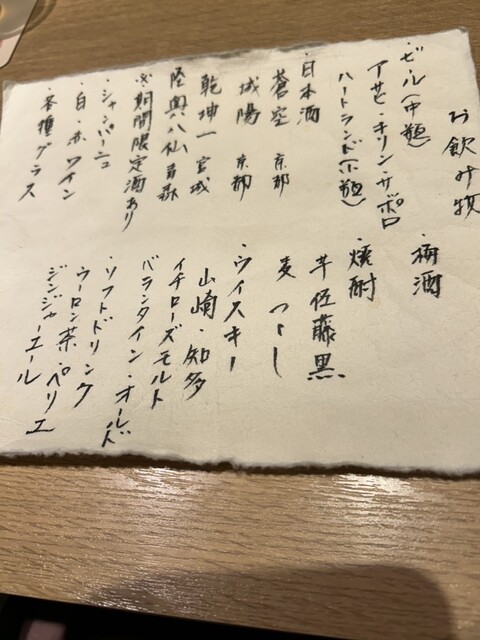 お飲み物
・ビール(中瓶)
アサヒ・キリン・サッポロ
ハートランド(小瓶)
・日本酒
蒼空 京都
城陽 京都
乾坤一 宮城
陸奥八仙 青森
※期間限定酒あり
・シャンパーニュ
・白・赤ワイン
・各種グラス
・梅酒
・焼酎
芋 佐藤黒
麦 つくし
・ウイスキー
山崎・知多
イチローズモルト
バランタイン・オールド
・ソフトドリンク
ウーロン茶・ペリエ
ジンジャーエール